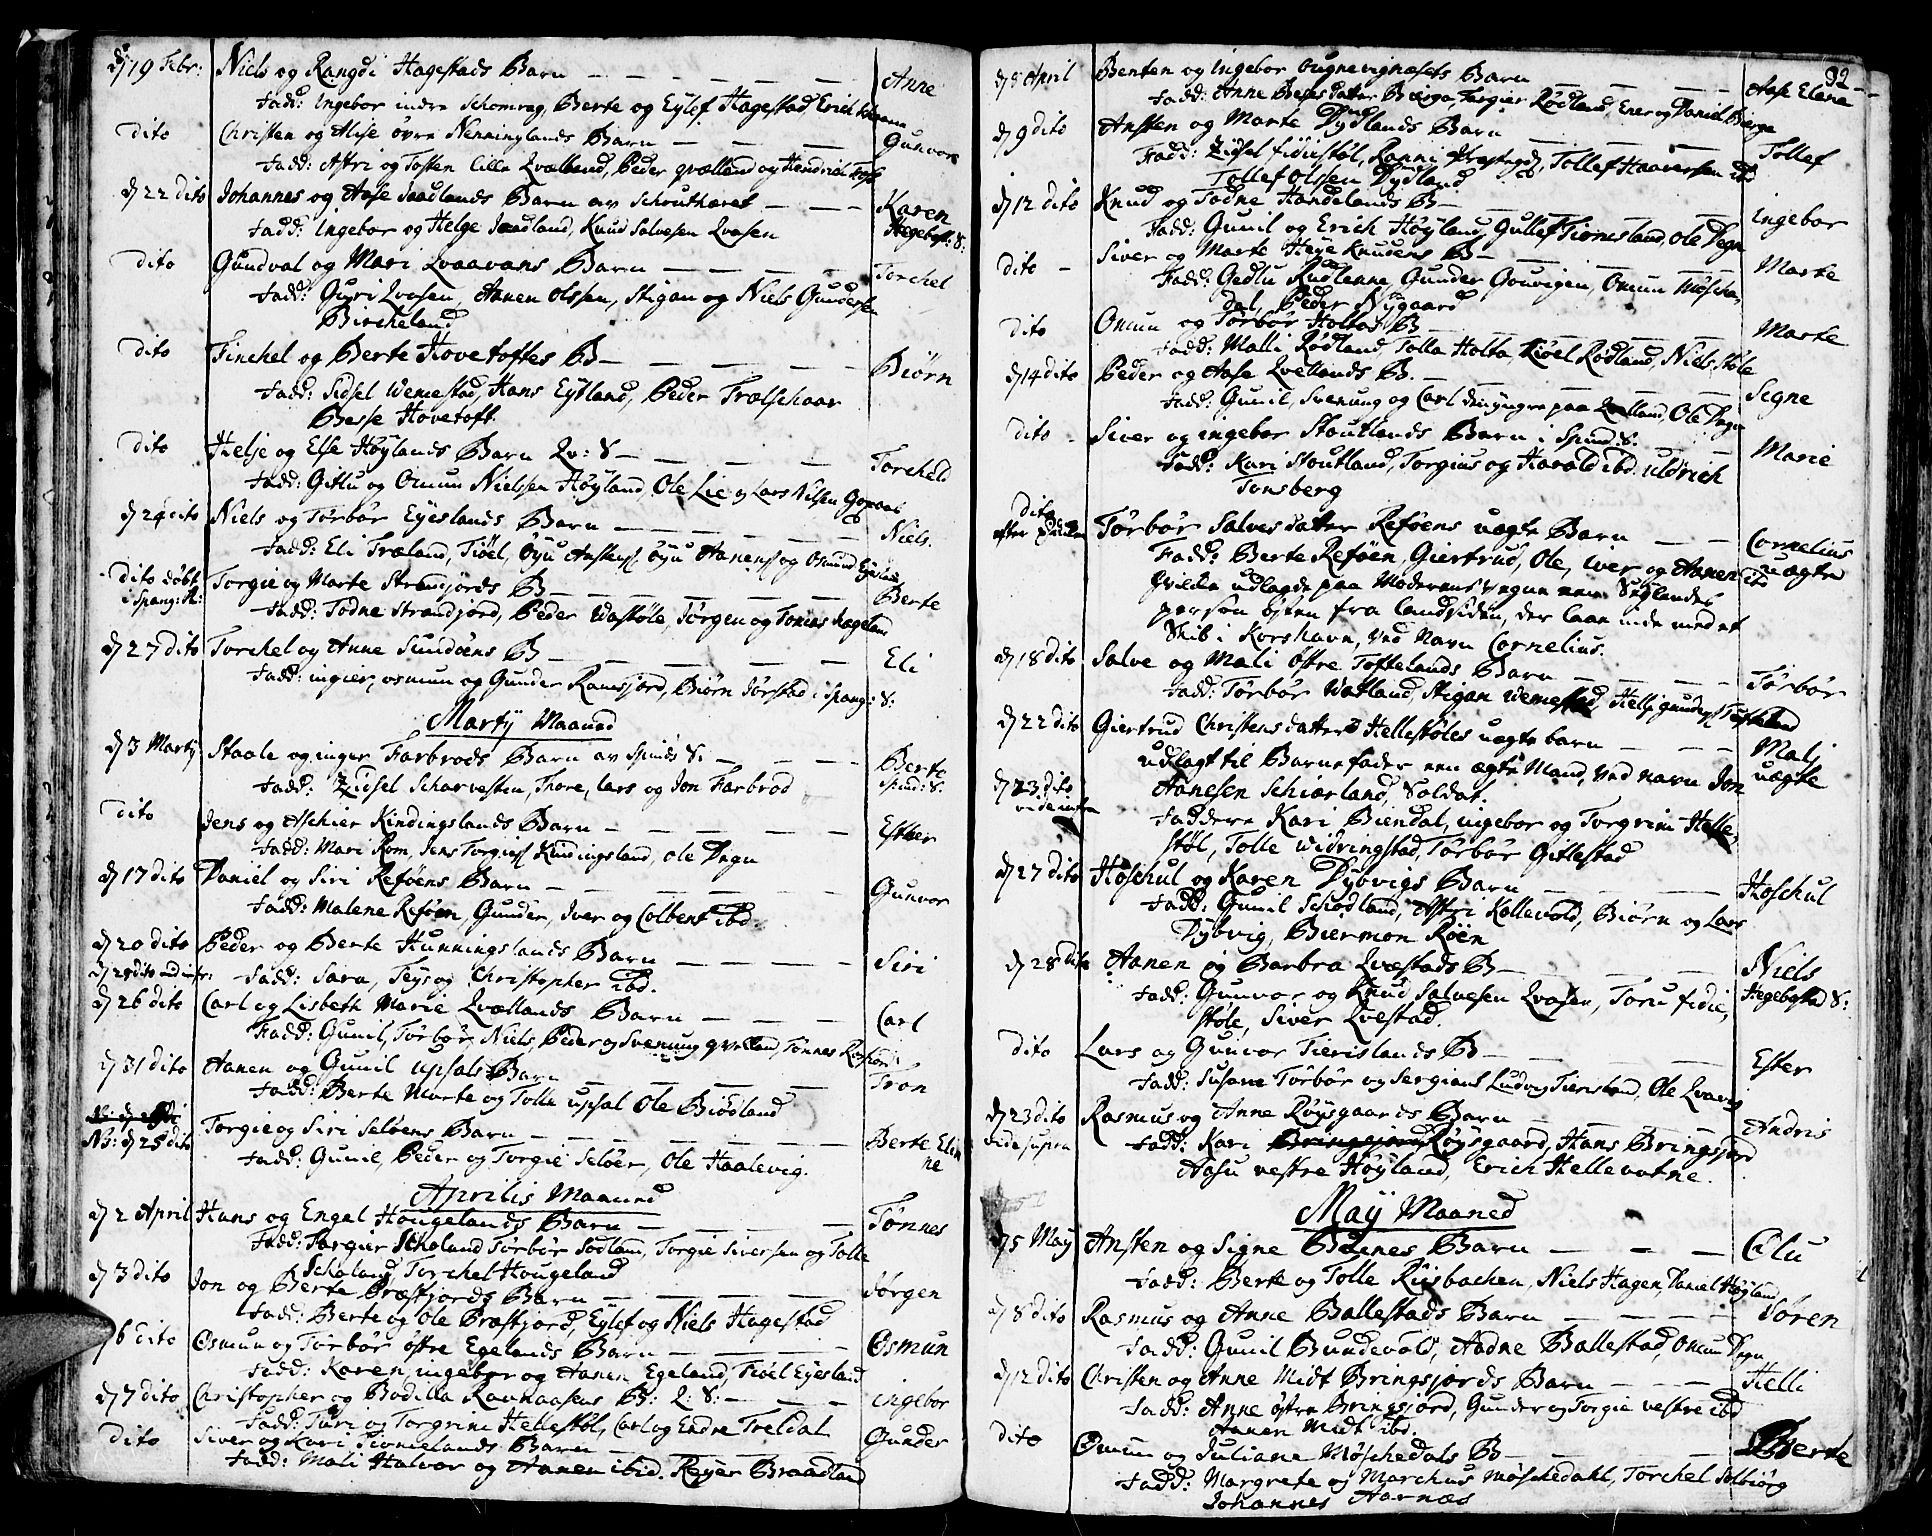 d 19 Febr: Niels og Rangdi Hagestads Barn Anne
Fadd: Ingebor indre Schomrag, Berte og Eylef Hagestad, Erich
dito Christen og Alise øvre Nenninglands Barn Gunvor
Fadd: Astri og Tosten lille Qvælland, Peder qvælland og Hendrich
d 22 dito Johannes og Aase Jaadlands Barn av Karen
Fadd: Ingebor og Helge Jaadland, Knud Salvesen Qvasen Hegebost: S:
dito Gundval og Mari Qvaavans Barn Torchel
Fadd: Guri Qvasen, Aanen Olssen, Stigan og Niels Gundersen
Bircheland
dito Tinchel og Berte Hovetoftes B Biørn
Fadd: Sidsel Wemestad, Hans Eytland, Peder Trælschaar
Besse Hovetoft.
dito Helje og Else Høylands Barn Qv: S Torcheld
Fadd: Gitlu og Omun Nielssen Høyland, Ole Lie og Lars Nilsen
d 24 dito Niels og Tørbør Eyeslands Barn Niels.
Fadd: Eli Træland, Tiøel, Öyu Anstens, Öyu Aanens og Osmund
dito døbt i Spang: K: Torgie og Marte Strandjords B Berte
Fadd: Todne Strandjord, Peder Wastøle, Jørgen og Tomas Hageland
d 27 dito Torchel og Anne Sundøens B Eli
Fadd: ingier, osmun og Gunder Ramsjord, Biørn Jørstad i Spang: S:
Martÿ Maaned
d 3 Martÿ Staale og inger Farbrods Barn av Spinds S: Berte
Fadd: Zidsel Scharvesten, Thore, Lars og Jon Farbrod Spind: S.
dito Jens og Aschier Kindingslands Barn Esther
Fadd: Mari Rom, Jens Torgies Kindingsland, Ole Degn
d 17 dito Daniel og Siri Reføens Barn Gunvor
Fadd: Malene Reføen, Gunder, Iver og Colbent ibd.
d 20 dito Peder og Berte Hunningslands Barn Siri
Fadd: Sara, Teys og Christopher ibd.
d 26 dito Carl og Lisbeth Marie Qvællands Barn Carl
Fadd: Gunil, Tørbør, Niels, Peder og Svenung qvelland, Tønnes
d 31 dito Aanen og Gunil upsals Barn Tron
Fadd: Berte Marte og Tolle upsal Ole Biødland
NB: d 25 dito Torgie og Siri Seløens Barn Berte Elinne
Fadd: Gunil, Peder og Torgie Seløer, Ole Haalevig.
Aprilis Maaned
d 2 April Hans og Engel Hougelands Barn Tønnes
Fadd: Targier Scholand Tørbør Sodland, Torgie Siversen og Tolle
Scholand, Torchel Hougeland
d 3 dito Jon og Berte Præstjords Barn Jørgen
Fadd: Berte og Ole Præstjord, Eylef og Niels Hagestad
d 6 dito Osmun og Tørbør østre Egelands Barn Osmun
Fadd: Karen, ingebor og Aanen Egeland, Tiøel Eyesland
d 7 dito Christopher og Bodilla Ravnaasens B: Q: S: ingebor
Fadd: Turi og Torgrim Hellestøl, Carl og Endre Treldal
dito Siver og Kari Tiomelands Barn Gunder
Fadd: Mali Halvor og Aanen ibid. Reyer Braadland
92
d 8 April Benten og Ingebor Barn Aase Elene
Fadd: Anne Besesdatter Targier Rødland, Ener og Daniel Berge
d 9 dito Ansten og Marte Dydlands Barn Tollef
Fadd: Zidsel fidiestøl, Ranni Tollef Haaversen ibd
Tollef Olsen Dydland
d 12 dito Knud og Todne Handelands B Ingebor
Fadd: Gunil og Erich Høyland, Gullef Tiomesland, Ole Degn
dito Siver og Marte Høye Knudens B Marte
Fadd: Gedlu Rudlenne, Gunder Gouvigen, Omun Møsche
dal, Peder Nygaard
dito Omun og Tørbør Holtas B Marte
Fadd: Malli Rødland, Tolla Holta, Tiøel Rødland, Niels Støle
d 14 dito Peder og Aase Qvellands B. Segne
Fadd: Gunil, Svenung og Carl den yngre paa Qvelland, Ole Degn
dito Siver og ingebor Stoutlands Barn i Spind: S: Marie
Fadd: Kari Stoutland, Torgius og Harald ibd: uldrich
Tonsberg
dito Tørbør Salvesdatter Reføens uægte Barn Cornelius uægte
Fadd: Berte Reføen, Giertrud, Ole, Iver og Aanen ibd
Hvilka udlagde paa Moderens Vegne een
person bÿten fra landsiden, der laae inde med et
Skib i Korshavn, ved Navn Cornelius.
d 18 dito Salve og Mali østre Toftelands Barn Tørbør
Fadd: Tørbør Watland, Stigan Wemestad, Helje gunders Tofteland
d 22 dito Giertrud Christensdatter Hellestøles uægte barn Malj uægte
udlagt til Barnefader een ægte Mand, ved navn Jon
d 23 dito vide infra Aanesen Schiærland, Soldat.
Faddere Kari Biendal, ingebor og Torgrim Helle-
støl, Tolle Widringstad, Tørbør Gitlestad
d 27 dito Høschul og Karen Dÿbvigs Barn Høschul
Fadd: Gunil Schodland, Astri Kollevold, Biørn og Lars
Dÿbvig, Biermon Röen
d 28 dito Aanen og Barbra Qvestads B Niels
Fadd: Gunvor og Knud Salvesen Qvasen, Toru fidie- Hegebostad S:
støle, Siver Qvestad.
dito Lars og Gunvor Tierislands B Ester
Fadd: Susane Tørbør og Sergiant Ludvig Tierisland, Ole Qvavig
d 23 dito vide supra Rasmus og Anne Røysgaards Barn Andris
Fadd: Kari Røysgaard, Hans Bringsjord
Aasu vestre Høyland, Erich Hellevatne.
Maÿ Maaned
d 5 May Ansten og Signe Birnes Barn Olu
Fadd: Berte og Tolle Riisbachen, Niels Hagen, Daniel Høyland,
d 8 dito Rasmus og Anne Ballestads Barn Søren
Fadd: Gunil Bundevold, Aadne Ballestad, Omun Degn
d 12 dito Christen og Anne Midt Bringsjords Barn Helli
Fadd: Anne østre Bringsjord, Gunder og Torgie vestre ibd
Aanen Midt ibd.
dito Omun og Juliane Møschedals B Berte
Fadd: Margrete og Marchus Møschedahl, Torchel
Johannes Aarnæs